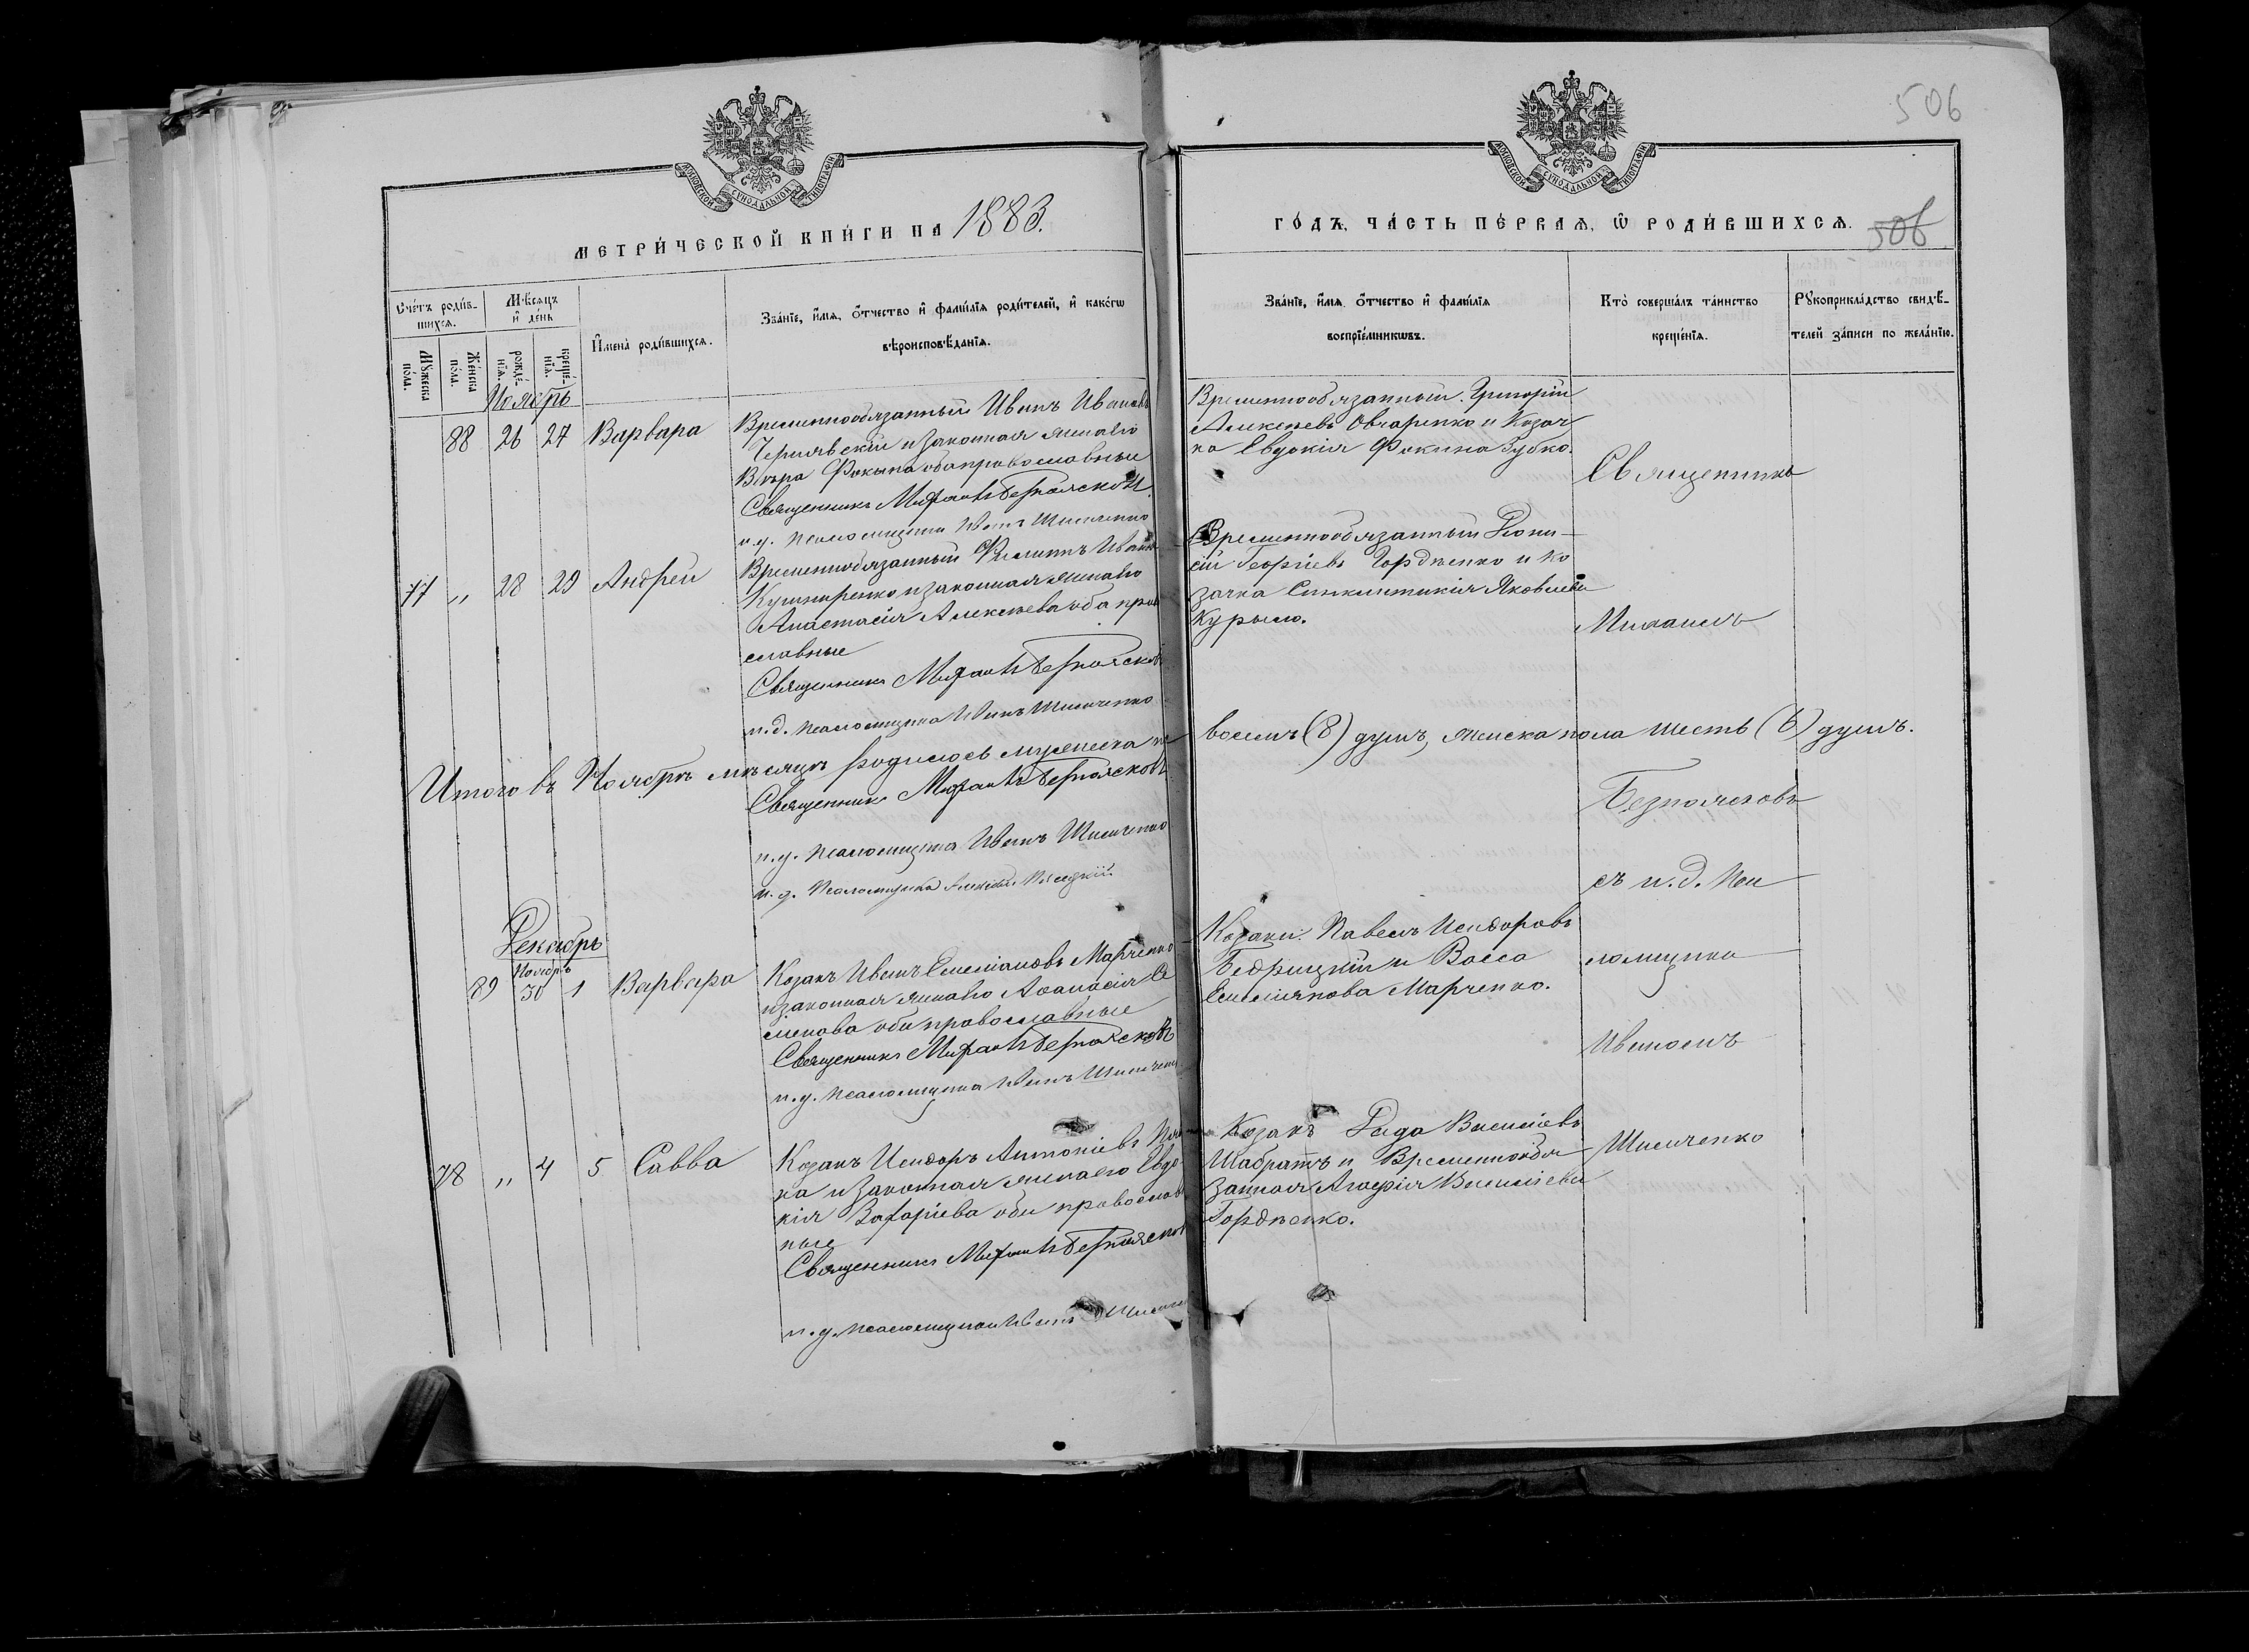 506
МОСКОВСКОЙ СУНОДАЛЬНОЙ ТИПОГРАФІИ
МОСКОВСКОЙ СУНОДАЛЬНОЙ ТИПОГРАФІИ
МЕТРИ́ЧЕСКОЙ КНИ́ГИ НА 1883.
ГО́ДЪ, ЧА́СТЬ ПЕ́РВАЯ, Ѽ РОДИ́ВШИХСЯ.
506
Сче́тъ роди́в-
шихся.
Мѣ́сяцъ
и҆ де́нь
Мꙋ́жеска по́ла.
Же́нска по́ла.
рожде́-
нїя.
креще́-
нїя.
И҆мена̀ роди́вшихся.
Зва́нїе, и҆́мя, ѻ҆́тчество и҆ фами́лїя роди́телей, и҆ како́гѡ
вѣроисповѣ́данїя.
Зва́нїе, и҆́мя, ѻ҆́тчество и҆ фами́лїя
воспрїе́мникѡвъ.
Кто̀ соверша́лъ та́инство
креще́нїя.
Рꙋкоприкла́дство свидѣ́-
телей за́писи по жела́нїю.
Ноябрь
88 26 27 Варвара
Временнообязанный Иванъ Ивановъ
Чернявскій и законная жена его
Вѣра Фокина оба православные
Священникъ Михаилъ Безпоясковъ
и.д. псаломщика Иванъ Шинченко
Временнообязанный Григорій
Алексѣевъ Овчаренко и Козач
ка Евдокія Фокина Зубко.
Священникъ
77 „ 28 29 Андрей
Временнообязанный Филиппъ Иванов
Кушниренко и законная жена его
Анастасія Алексѣева оба право
славные
Священникъ Михаилъ Безпоясковъ
и.д. псаломщика Иванъ Шинченко
Временнообязанный Діони-
сій Георгіевъ Гордѣенко и Ко
зачка Синклитикія Яковлева
Курыло.
Михаилъ
Итого въ Ноябрѣ мѣсяцѣ родилось мужеска по
восемь (8) душъ, женска пола шесть (6) душъ.
Священникъ Михаилъ Безпоясковъ
и.д. псаломщика Иванъ Шинченко
и.д. Псаломщика
Безпоясковъ
съ и.д. Пса
Декабрь
89 Ноябрь 30 1 Варвара
Козакъ Иванъ Емеліановъ Марченко
и законная жена его Аѳанасія Се
менова оба православные
Священникъ Михаилъ Безпоясковъ
и.д. псаломщика Иванъ Шинченко
Козаки: Павелъ Исидоровъ
Бедрицкій и Васса
Емеліянова Марченко.
ломщика
Иваномъ
78 „ 4 5 Савва
Козакъ Исидоръ Антоніевъ
ка и законная жена его Евдо
кія Захаріева оба православ
ные
Священникъ Михаилъ Безпоясков
и.д. псаломщика Иванъ
Козакъ Василіевъ
Шабратъ и Временнообя
занная Агафія Василіева
Гордѣенко.
Шинченко